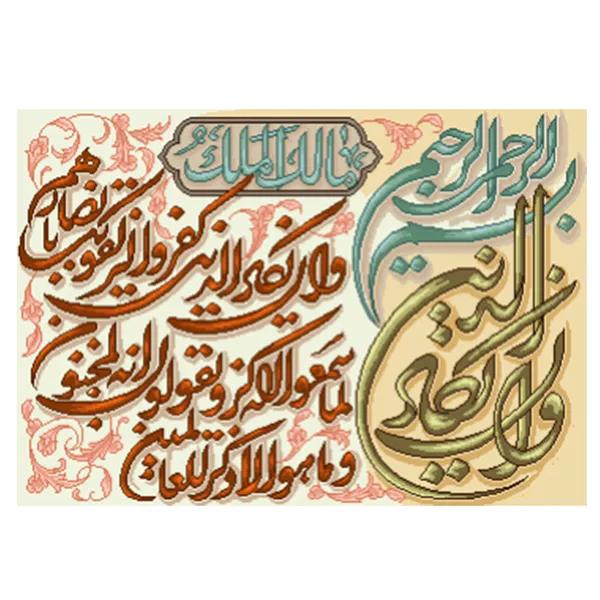 بسم الله الرحمن الرحیم
مالک الملک
وان یکاد الذین
وان یکاد الذین کفروا لیزلقونک بابصارهم
لما سمعوا الذکر و یقولون انه لمجنون
و ما هو الا ذکر للعالمین